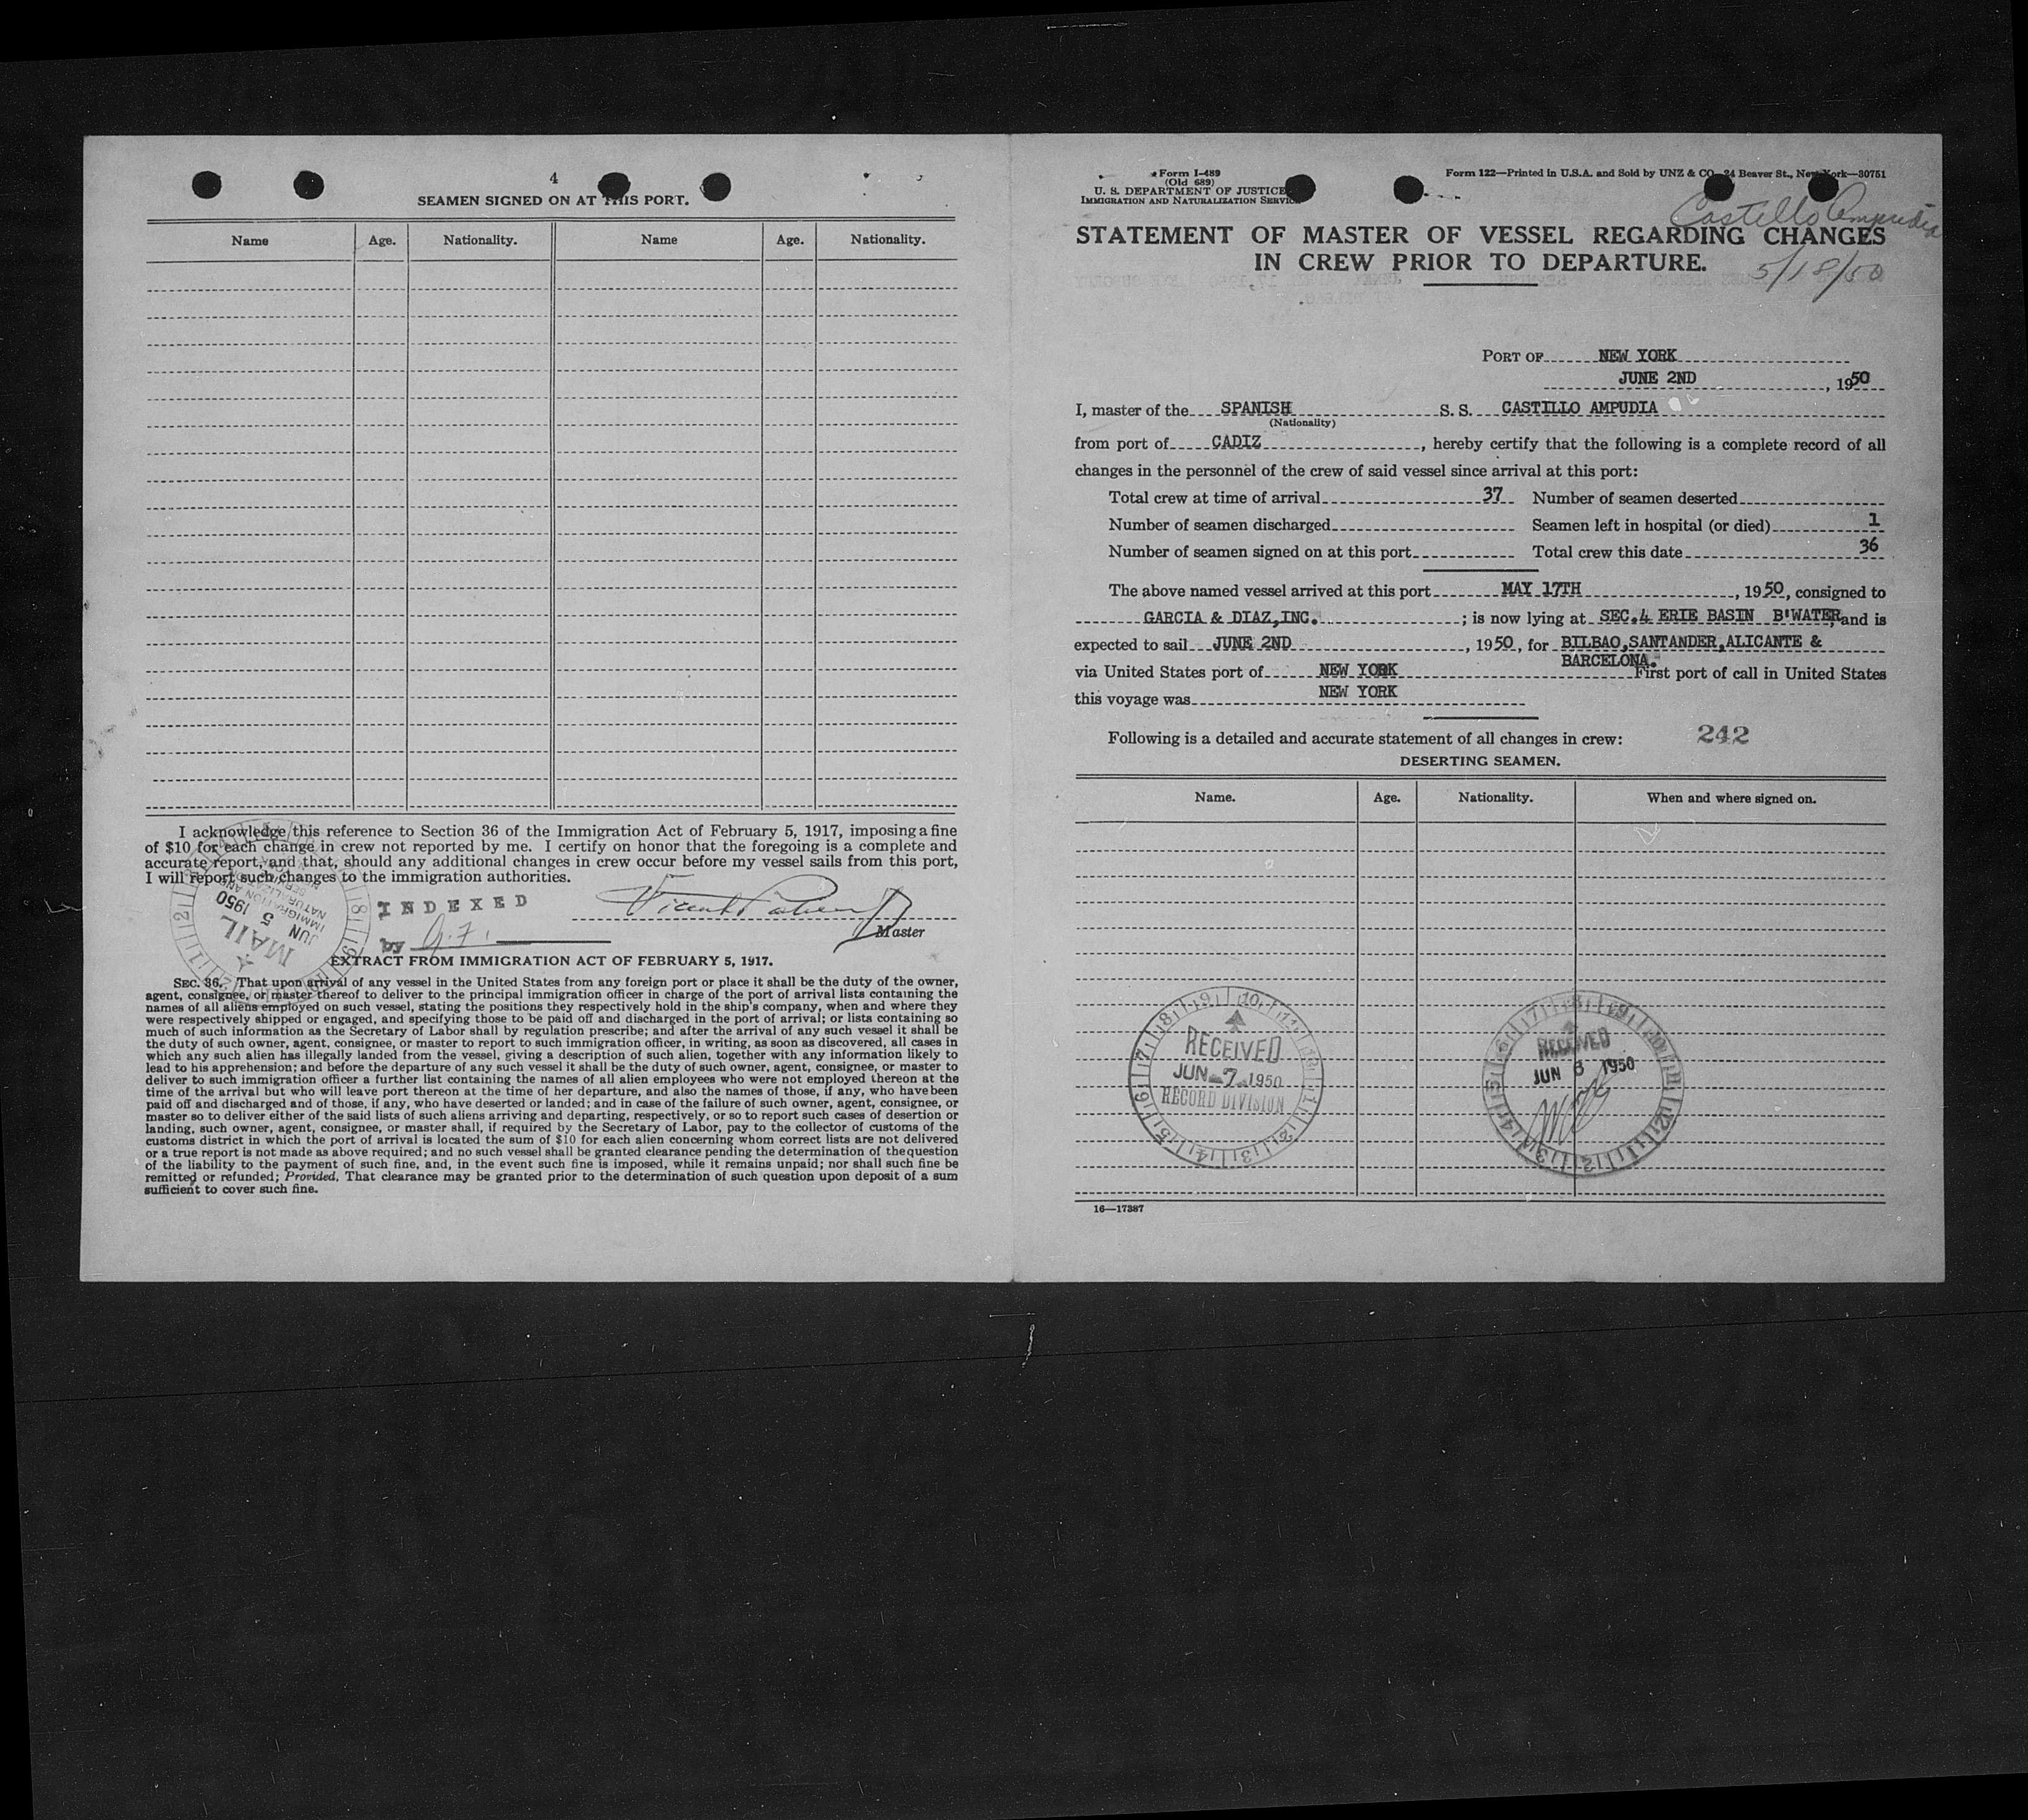 4
SEAMEN SIGNED ON AT THIS PORT.
Name Age. Nationality. Name Age. Nationality.
I acknowledge this reference to Section 36 of the Immigration Act of February 5, 1917, imposing a fine
of $10 for each change in crew not reported by me. I certify on honor that the foregoing is a complete and
accurate report, and that, should any additional changes in crew occur before my vessel sails from this port,
I will report such changes to the immigration authorities.
MAIL
JUN 5 1950
IMMIGRATION AND
INDEXED
by
Master
EXTRACT FROM IMMIGRATION ACT OF FEBRUARY 5, 1917.
SEC. 36. That upon arrival of any vessel in the United States from any foreign port or place it shall be the duty of the owner,
agent, consignee, or master thereof to deliver to the principal immigration officer in charge of the port of arrival lists containing the
names of all aliens employed on such vessel, stating the positions they respectively hold in the ship's company, when and where they
were respectively shipped or engaged, and specifying those to be paid off and discharged in the port of arrival; or lists containing so
much of such information as the Secretary of Labor shall by regulation prescribe; and after the arrival of any such vessel it shall be
the duty of such owner, agent, consignee, or master to report to such immigration officer, in writing, as soon as discovered, all cases in
which any such alien has illegally landed from the vessel, giving a description of such alien, together with any information likely to
lead to his apprehension; and before the departure of any such vessel it shall be the duty of such owner, agent, consignee, or master to
deliver to such immigration officer a further list containing the names of all alien employees who were not employed thereon at the
time of the arrival but who will leave port thereon at the time of her departure, and also the names of those, if any, who have been
paid off and discharged and of those, if any, who have deserted or landed; and in case of the failure of such owner, agent, consignee, or
master so to deliver either of the said lists of such aliens arriving and departing, respectively, or so to report such cases of desertion or
landing, such owner, agent, consignee, or master shall, if required by the Secretary of Labor, pay to the collector of customs of the
customs district in which the port of arrival is located the sum of $10 for each alien concerning whom correct lists are not delivered
or a true report is not made as above required; and no such vessel shall be granted clearance pending the determination of the question
of the liability to the payment of such fine, and, in the event such fine is imposed, while it remains unpaid; nor shall such fine be
remitted or refunded; Provided, That clearance may be granted prior to the determination of such question upon deposit of a sum
sufficient to cover such fine.
Form I-489
(Old 689)
U. S. DEPARTMENT OF JUSTICE
IMMIGRATION AND NATURALIZATION SERVICE
Form 122—Printed in U.S.A. and Sold by UNZ & CO. 24 Beaver St., New York—30751
Castillo Ampudia
STATEMENT OF MASTER OF VESSEL REGARDING CHANGES
IN CREW PRIOR TO DEPARTURE.
5/18/50
PORT OF NEW YORK
JUNE 2ND, 1950
I, master of the SPANISH S. S. CASTILLO AMPUDIA
(Nationality)
from port of CADIZ, hereby certify that the following is a complete record of all
changes in the personnel of the crew of said vessel since arrival at this port:
Total crew at time of arrival 37 Number of seamen deserted
Number of seamen discharged Seamen left in hospital (or died) 1
Number of seamen signed on at this port Total crew this date 36
The above named vessel arrived at this port MAY 17TH, 1950, consigned to
GARCIA & DIAZ,INC.; is now lying at SEC.4 ERIE BASIN B'WATER, and is
expected to sail JUNE 2ND, 1950, for BILBAO,SANTANDER,ALICANTE &
BARCELONA.
via United States port of NEW YORK First port of call in United States
this voyage was NEW YORK
Following is a detailed and accurate statement of all changes in crew: 242
DESERTING SEAMEN.
Name. Age. Nationality. When and where signed on.
RECEIVED
JUN 7 1950
RECORD DIVISION
RECEIVED
JUN 6 1950
16—17387